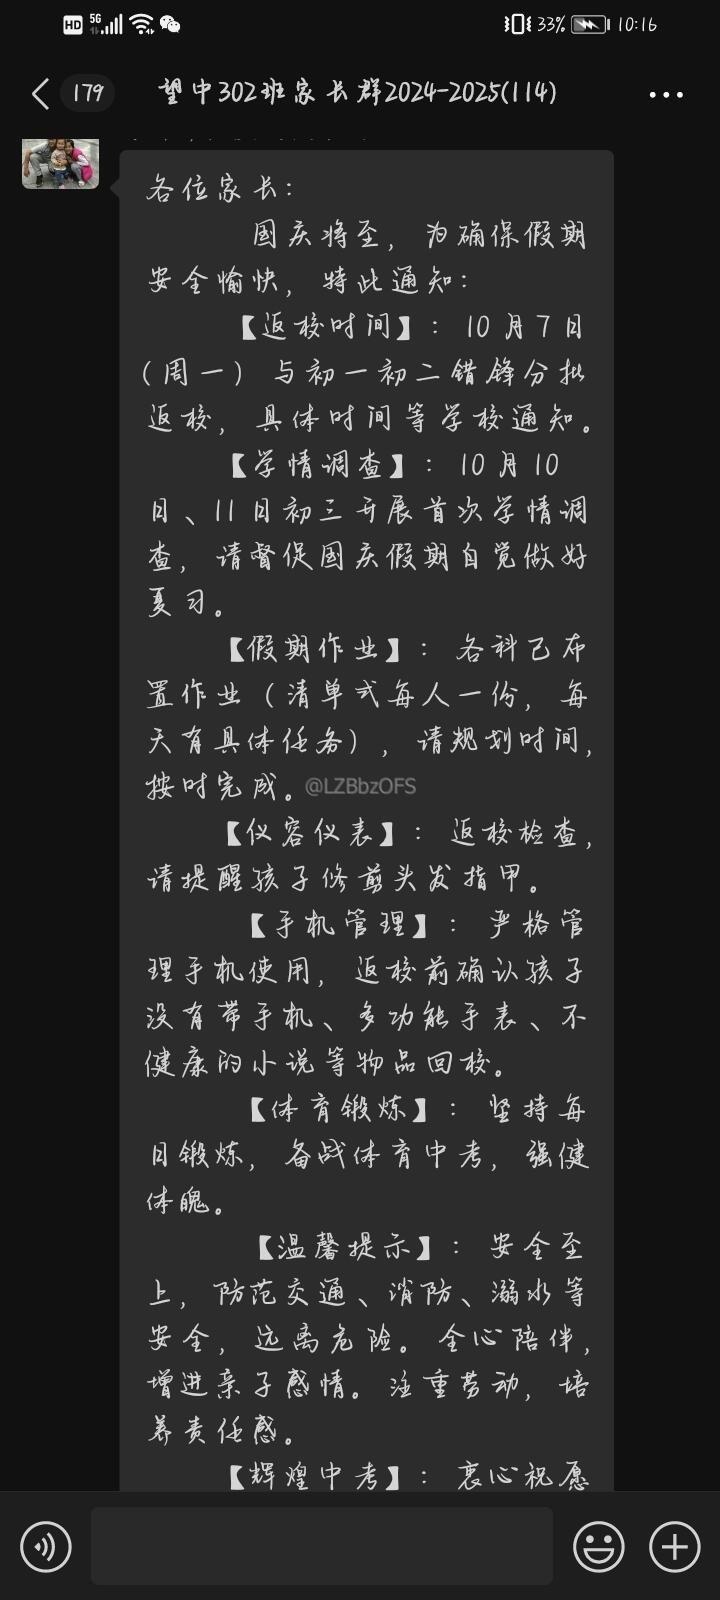 HD 5G 33% 10:16
179 望中302班家长群2024-2025(114)
各位家长：
国庆将至，为确保假期
安全愉快，特此通知：
【返校时间】：10月7日
(周一) 与初一初二错锋分批
返校，具体时间等学校通知。
【学情调查】：10月10
日、11日初三开展首次学情调
查，请督促国庆假期自觉做好
复习。
【假期作业】：各科已布
置作业（清单式每人一份，每
天有具体任务），请规划时间，
按时完成。@LZBbzOFS
【仪容仪表】：返校检查，
请提醒孩子修剪头发指甲。
【手机管理】：严格管
理手机使用，返校前确认孩子
没有带手机、多功能手表、不
健康的小说等物品回校。
【体育锻炼】：坚持每
日锻炼，备战体育中考，强健
体魄。
【温馨提示】：安全至
上，防范交通、消防、溺水等
安全，远离危险。全心陪伴，
增进亲子感情。注重劳动，培
养责任感。
【辉煌中考】：衷心祝愿